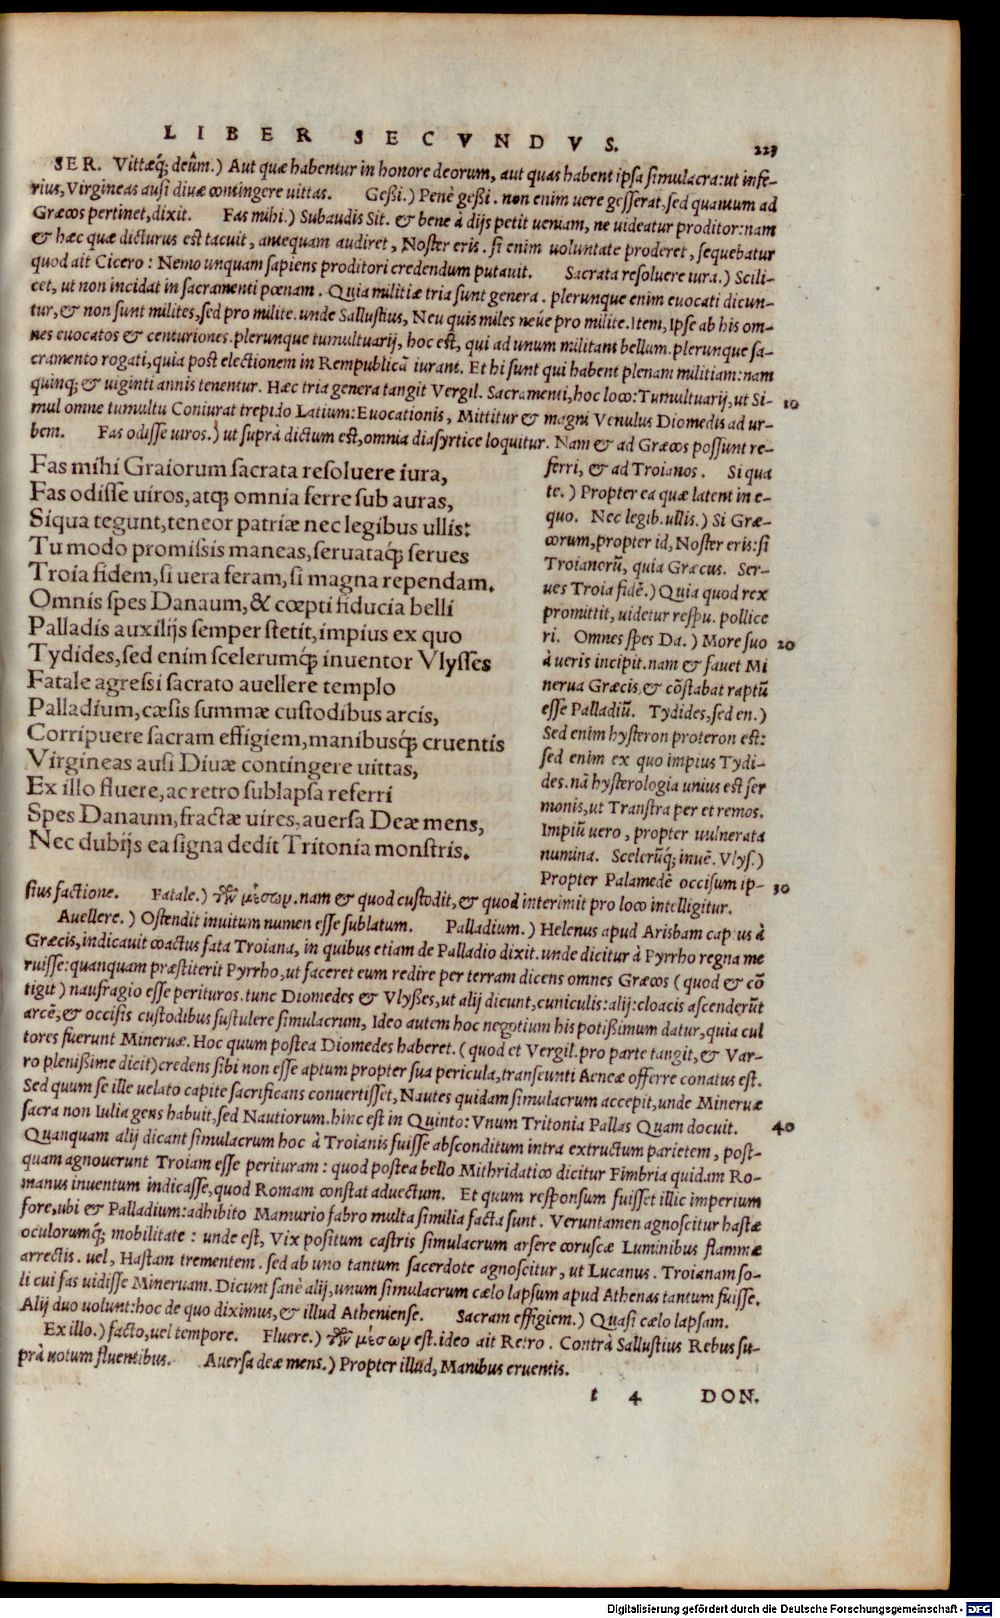 LIBER SECVNDVS. 223
SER. Vittæq́; deûm.) Aut quæ habentur in honore deorum, aut quas habent ipsa simulacra: ut infe-
rius, Virgineas ausi diuæ contingere uittas. Geßi.) Penè geßi. non enim uere gesserat, sed quantum ad
Græcos pertinet, dixit. Fas mihi.) Subaudis Sit. & bene à dijs petit ueniam, ne uideatur proditor: nam
& hæc quæ dicturus est tacuit, antequam audiret, Noster eris. si enim uoluntate proderet, sequebatur
quod ait Cicero: Nemo unquam sapiens proditori credendum putauit. Sacrata resoluere iura.) Scili-
cet, ut non incidat in sacramenti pœnam. Quia militiæ tria sunt genera. plerunque enim euocati dicun-
tur, & non sunt milites, sed pro milite. unde Sallustius, Neu quis miles neúe pro milite. Item, Ipse ab his om-
nes euocatos & centuriones. plerunque tumultuarij, hoc est, qui ad unum militant bellum. plerunque sa-
cramento rogati, quia post electionem in Rempublicā iurant. Et hi sunt qui habent plenam militiam: nam
quinq; & uiginti annis tenentur. Hæc tria genera tangit Vergil. Sacramenti, hoc loco: Tumultuarij, ut Si- 10
mul omne tumultu Coniurat trepido Latium: Euocationis, Mittitur & magni Venulus Diomedis ad ur-
bem. Fas odisse uiros.) ut suprà dictum est, omnia diasyrtice loquitur. Nam & ad Græcos possunt re-
Fas mihi Graiorum sacrata resoluere iura,
Fas odisse uiros, atq; omnia ferre sub auras,
Siqua tegunt, teneor patriæ nec legibus ullis:
Tu modo promissis maneas, seruataq́; serues
Troia fidem, si uera feram, si magna rependam.
Omnis spes Danaum, & cœpti fiducia belli
Palladis auxilijs semper stetit, impius ex quo
Tydides, sed enim scelerumq́; inuentor Vlysses
Fatale agressi sacrato auellere templo
Palladium, cæsis summæ custodibus arcis,
Corripuere sacram effigiem, manibusq́; cruentis
Virgineas ausi Diuæ contingere uittas,
Ex illo fluere, ac retro sublapsa referri
Spes Danaum, fractæ uires, auersa Deæ mens,
Nec dubijs ea signa dedit Tritonia monstris.
ferri, & ad Troianos. Si qua
te.) Propter ea quæ latent in e-
quo. Nec legib. ullis.) Si Græ-
corum, propter id, Noster eris: si
Troianorū, quia Græcus. Ser-
ues Troia fidē.) Quia quod rex
promittit, uidetur respu. pollice
ri. Omnes spes Da.) More suo 20
à ueris incipit. nam & fauet Mi
nerua Græcis, & cōstabat raptū
esse Palladiū. Tydides, sed en.)
Sed enim hysteron proteron est:
sed enim ex quo impius Tydi-
des. nā hysterologia unius est ser
monis, ut Transtra per et remos.
Impiū uero, propter uulnerata
numina. Scelerūq́; inuē. Vlys.)
Propter Palamedē occisum ip- 30
sius factione. Fatale.) τῶν μέσων. nam & quod custodit, & quod interimit pro loco intelligitur.
Auellere.) Ostendit inuitum numen esse sublatum. Palladium.) Helenus apud Arisbam captus à
Græcis, indicauit coactus fata Troiana, in quibus etiam de Palladio dixit. unde dicitur à Pyrrho regna me
ruisse: quanquam præstiterit Pyrrho, ut faceret eum redire per terram dicens omnes Græcos (quod & cō
tigit) naufragio esse perituros. tunc Diomedes & Vlyßes, ut alij dicunt, cuniculis: alij: cloacis ascenderūt
arcē, & occisis custodibus sustulere simulacrum, Ideo autem hoc negotium his potißimum datur, quia cul
tores fuerunt Mineruæ. Hoc quum postea Diomedes haberet. (quod et Vergil. pro parte tangit, & Var-
ro plenißime dicit) credens sibi non esse aptum propter sua pericula, transeunti Aeneæ offerre conatus est.
Sed quum se ille uelato capite sacrificans conuertisset, Nautes quidam simulacrum accepit, unde Mineruæ
sacra non Iulia gens habuit, sed Nautiorum. hinc est in Quinto: Vnum Tritonia Pallas Quam docuit. 40
Quanquam alij dicant simulacrum hoc à Troianis fuisse absconditum intra extructum parietem, post-
quam agnouerunt Troiam esse perituram: quod postea bello Mithridatico dicitur Fimbria quidam Ro-
manus inuentum indicasse, quod Romam constat aduectum. Et quum responsum fuisset illic imperium
fore, ubi & Palladium: adhibito Mamurio fabro multa similia facta sunt. Veruntamen agnoscitur hastæ
oculorumq́; mobilitate: unde est, Vix positum castris simulacrum arsere coruscæ Luminibus flammæ
arrectis. uel, Hastam trementem. sed ab uno tantum sacerdote agnoscitur, ut Lucanus. Troianam so-
li cui fas uidisse Mineruam. Dicunt sanè alij, unum simulacrum cælo lapsum apud Athenas tantum fuisse.
Alij duo uolunt: hoc de quo diximus, & illud Atheniense. Sacram effigiem.) Quasi cælo lapsam.
Ex illo.) facto, uel tempore. Fluere.) τῶν μέσων est. ideo ait Retro. Contrà Sallustius Rebus su-
prà uotum fluentibus. Auersa deæ mens.) Propter illud, Manibus cruentis.
t 4 DON.
Digitalisierung gefördert durch die Deutsche Forschungsgemeinschaft - DFG